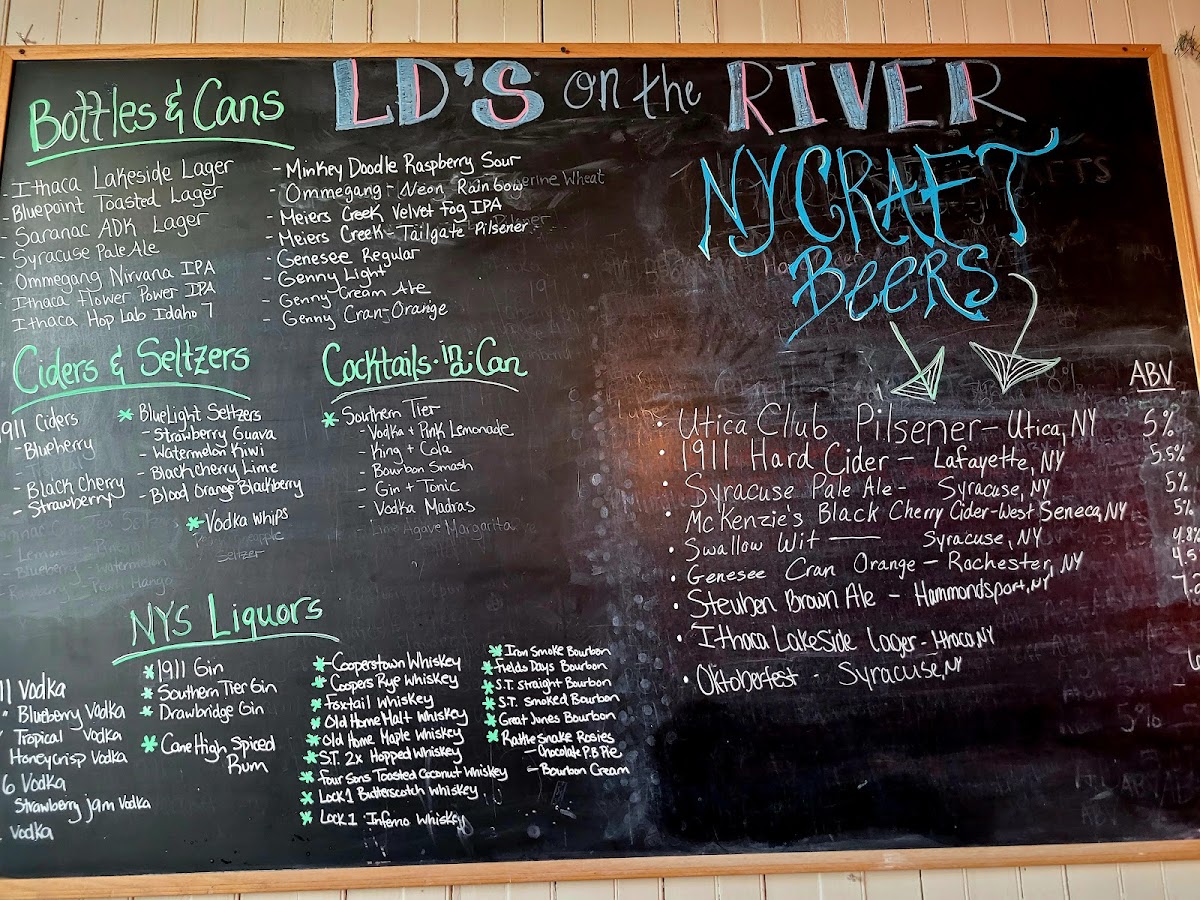 LD'S on the RIVER
Bottles & Cans
Ithaca Lakeside Lager
- Bluepoint Toasted Lager
- Saranac ADK Lager
- Syracuse Pale Ale
Ommegang Nirvana IPA
- Ithaca Flower Power IPA
- Ithaca Hop Lab Idaho 7
- Minkey Doodle Raspberry Sour
- Ommegang - Neon Rainbow
- Meiers Creek Velvet Fog IPA
- Meiers Creek - Tailgate Pilsener
- Genesee Regular
- Genny Light
- Genny Cream Ale
- Genny Cran-Orange
Ciders & Seltzers
1911 Ciders
- Blueberry
- Black Cherry
- Strawberry
* Bluelight Seltzers
- Strawberry Guava
- Watermelon Kiwi
- Black cherry Lime
- Blood Orange Blackberry
* Vodka whips
Seltzer
Cocktails in a Can
* Southern Tier
- Vodka + Pink Lemonade
- King + Cola
- Bourbon Smash
- Gin + Tonic
- Vodka Madras
- Lime Agave Margarita
NYS Liquors
11 Vodka
" Blueberry Vodka
Tropical Vodka
Honeycrisp Vodka
6 Vodka
Strawberry jam Vodka
Vodka
* 1911 Gin
* Southern Tier Gin
* Drawbridge Gin
* Cane High Spiced
Rum
* Cooperstown Whiskey
* Coopers Rye Whiskey
* Foxtail Whiskey
* Old Home Malt Whiskey
* Old Home Maple Whiskey
* S.T. 2x Hopped Whiskey
* Four Sons Toasted Coconut Whiskey
* Lock 1 Butterscotch Whiskey
* Lock 1 Inferno Whiskey
* Iron Smoke Bourbon
* Fields Days Bourbon
* S.T. Straight Bourbon
* S.T. Smoked Bourbon
* Great Junes Bourbon
* Rattle Snake Rosies
- Chocolate P.B Pie
- Bourbon Cream
NY CRAFT
BEERS
ABV
• Utica Club Pilsener - Utica, NY 5%
• 1911 Hard Cider - Lafayette, NY 5.5%
• Syracuse Pale Ale - Syracuse, NY 5%
• McKenzie's Black Cherry Cider - West Seneca, NY 5%
• Swallow Wit — Syracuse, NY 4.8%
• Genesee Cran Orange - Rochester, NY 4.5
• Steuben Brown Ale - Hammondsport, NY 7.2
• Ithaca Lakeside Lager - Ithaca NY
• Oktoberfest - Syracuse, NY